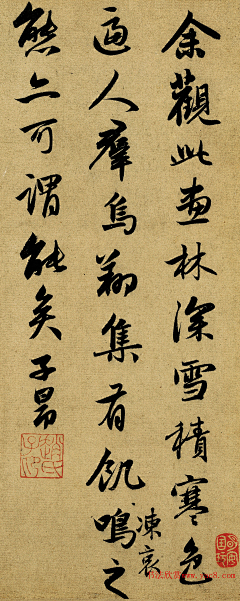 余觀此畫林深雪積寒色
逼人羣烏翔集有飢鳴之
凍哀
態亦可謂能矣子昂
趙氏子昂